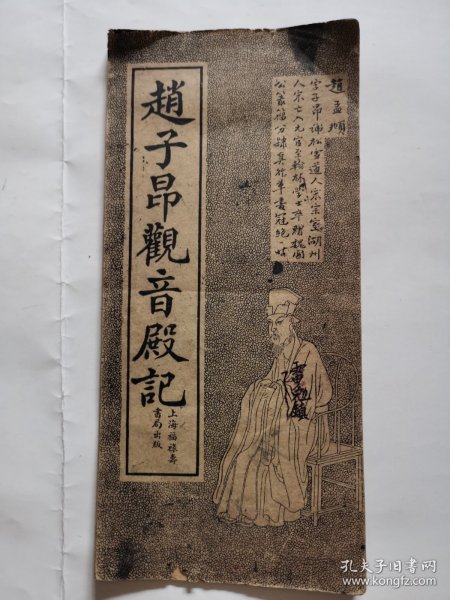 趙孟頫
字子昂號松雪道人宗宗室湖州
人宋亡入元官至翰林學士卒贈魏國
公篆籀分隸真行草書冠絕一時
趙子昂觀音殿記
上海福祿壽
書局出版
孔夫子旧书网
www.kongfz.com